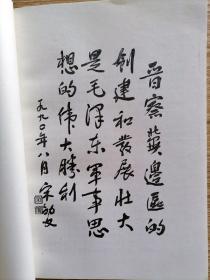 晋察冀邊區的
创建和發展壮大
是毛泽东軍事思
想的伟大勝利
一九九〇年八月 宋劭文